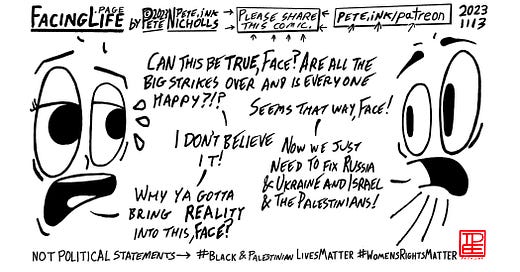 FACINGLIFE.PAGE
BY ©2023 PETE.ink
PETE NICHOLLS
PLEASE SHARE
THIS COMIC.
PETE.ink/patreon
2023
1113
CAN THIS BE TRUE, FACE? ARE ALL THE
BIG STRIKES OVER AND IS EVERYONE
HAPPY?!?
SEEMS THAT WAY, FACE!
I DON'T BELIEVE
IT!
NOW WE JUST
NEED TO FIX RUSSIA
& UKRAINE AND ISRAEL
& THE PALESTINIANS!
WHY YA GOTTA
BRING REALITY
INTO THIS, FACE?
NOT POLITICAL STATEMENTS→ #BLACK & PALESTINIAN LIVESMATTER #WOMENSRIGHTSMATTER